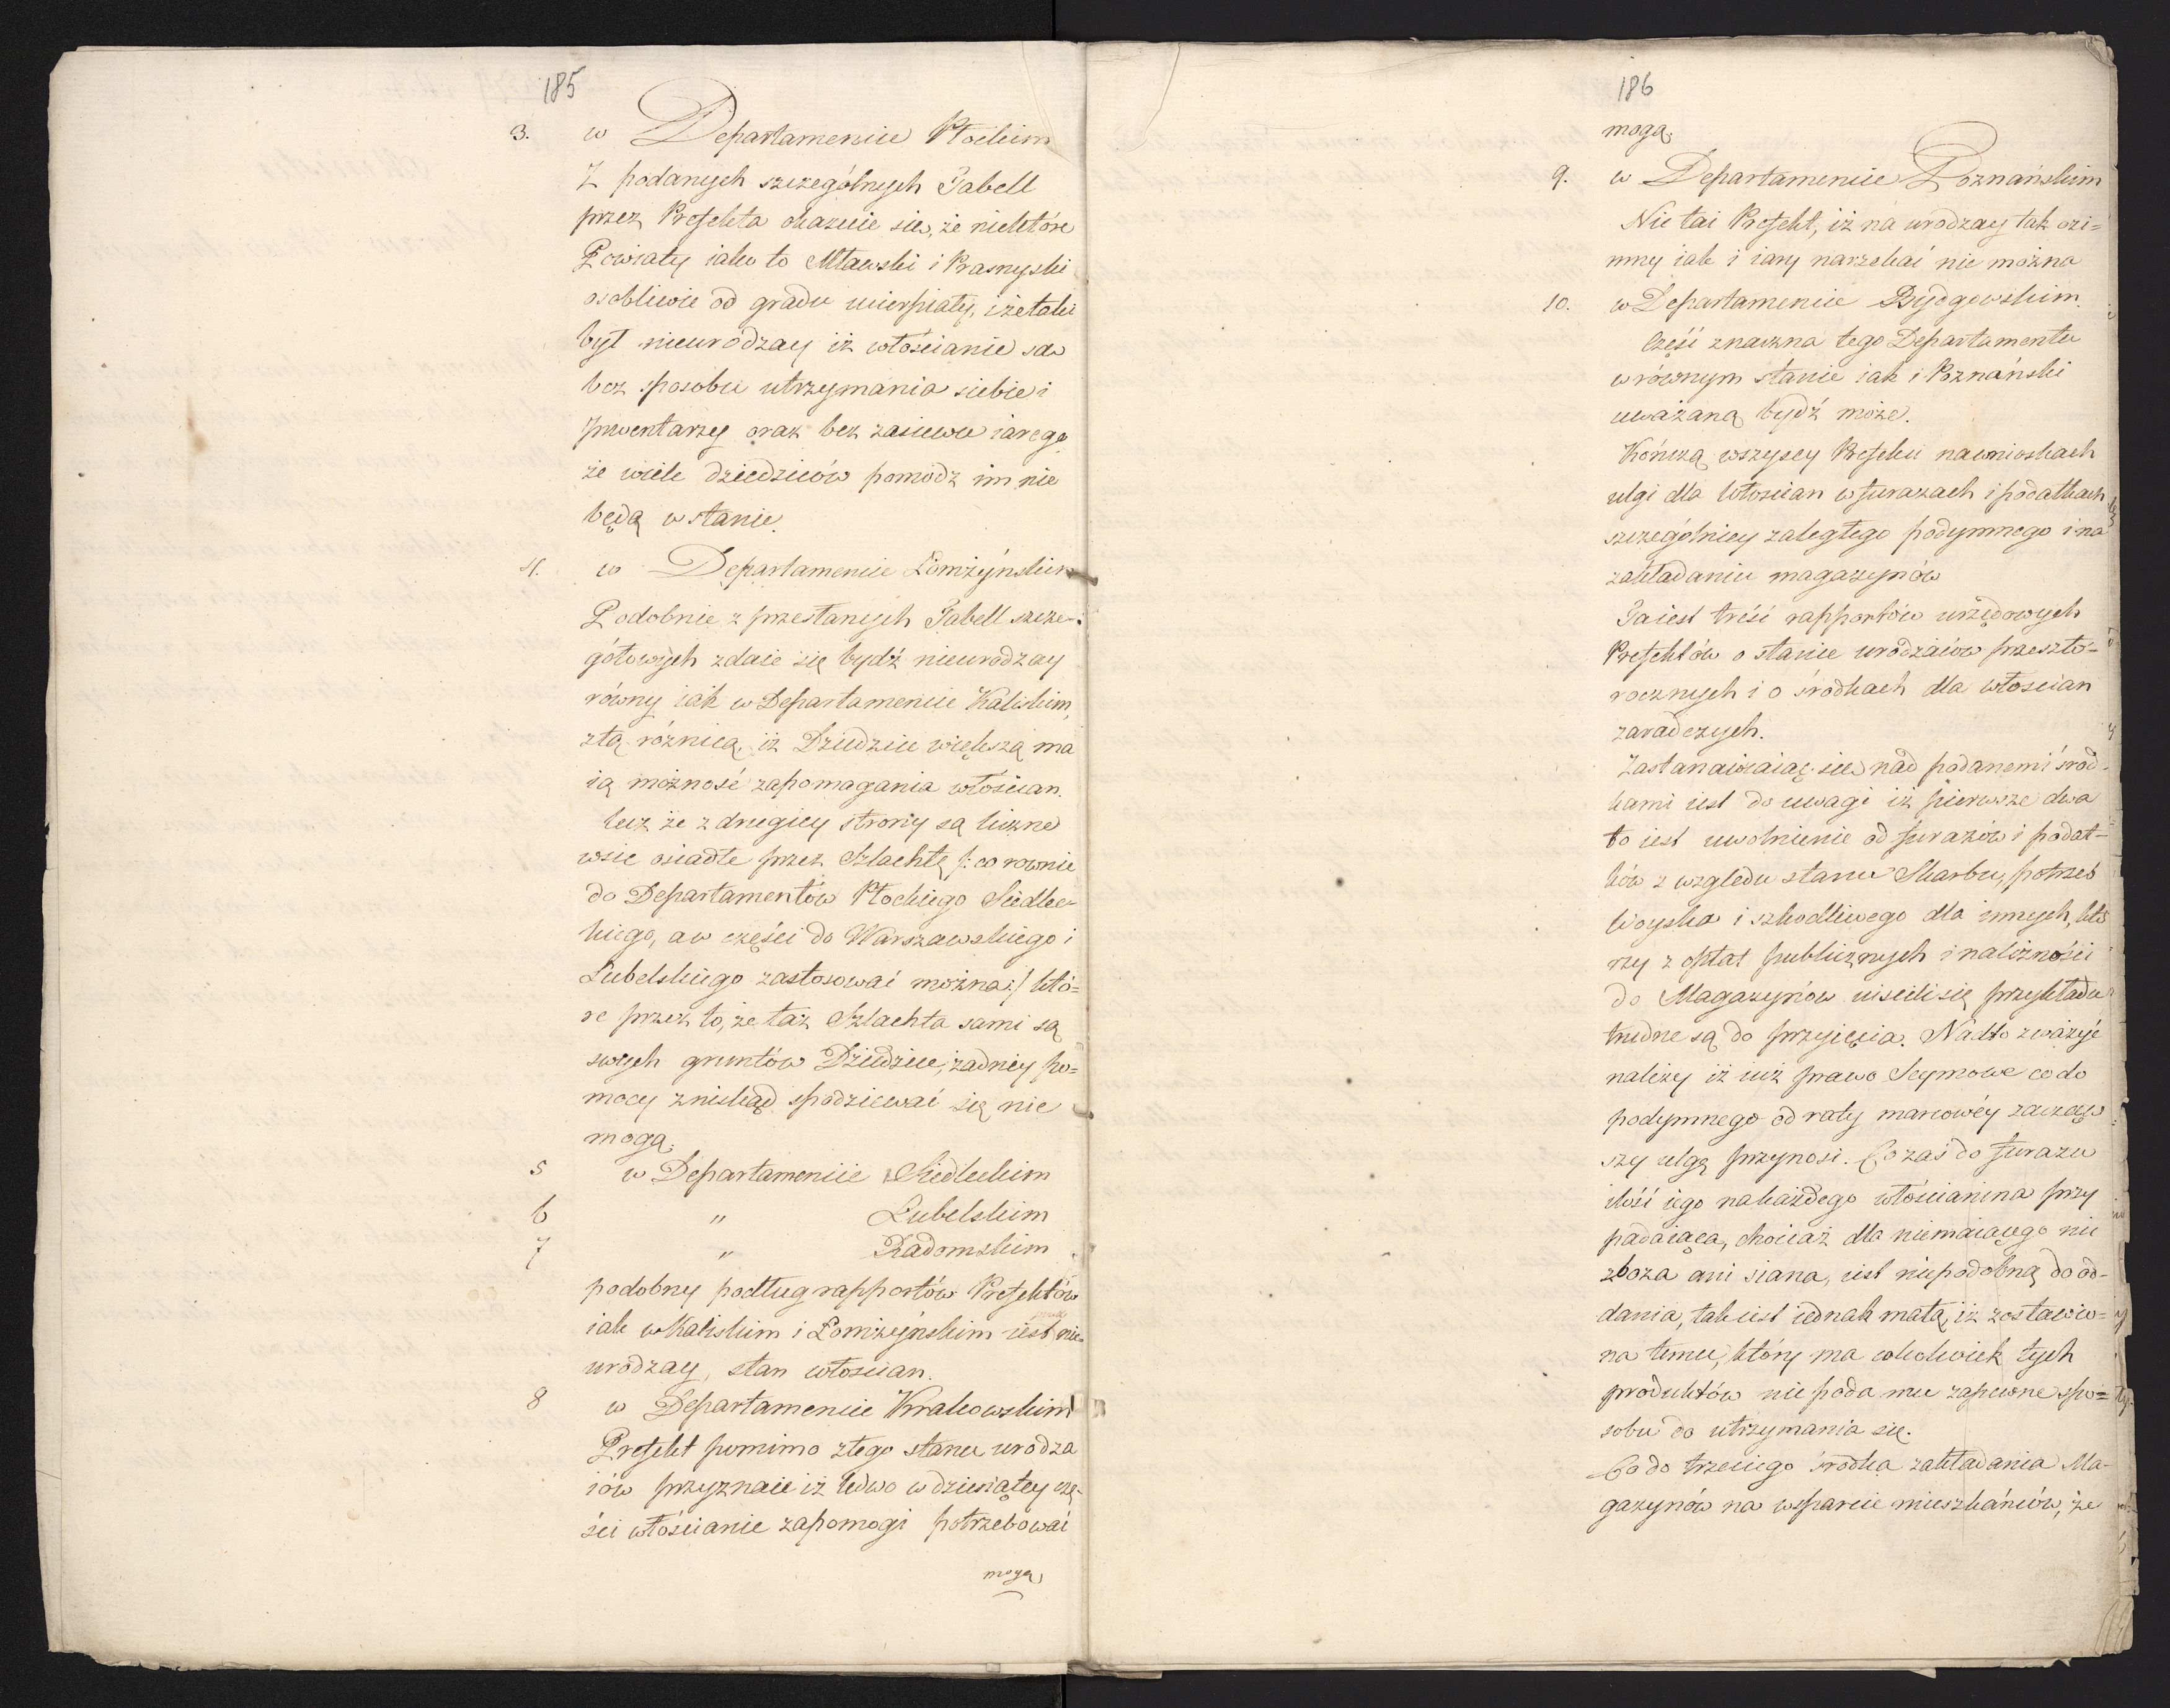 185
3. w Departamencie Płockim
Z podanych szczególnych Tabell
przez Prefekta okazuie się, że niektóre
Powiaty iako to Mławski i Prasnyski
osobliwie od gradu ucierpiały, i że taki
był nieurodzay iż włościanie są
bez sposobu utrzymania siebie i
Jnwentarzy oraz bez zasiewu iarego
że wiele dziedziców pomódz im nie
będą w stanie.
4. w Departamencie Łomżyńskim
Podobnie z przesłanych Tabell szcze=
gółowych zdaie się bydź nieurodzay
równy iak w Departamencie Kaliskim,
z tą różnicą, iż Dziedzice większą ma
ią możność zapomagania włościan.
lecz że z drugiey strony są liczne
wsie osiadłe przez Szlachtę /: co rownie
do Departamentów Płockiego Siedlec=
kiego, a w części do Warszawskiego i
Lubelskiego zastosować można :/ któ=
re przez to, że taż Szlachta sami są
swych gruntów Dziedzice, żadney po=
mocy znikąd spodziewać się nie
mogą.
5 w Departamencie Siedleckim
6 " Lubelskim
7 " Radomskim
podobny podług rapportów Prefektów
iak w Kaliskim i Łomżyńskim iest nie=
urodzay, stan włoscian.
8 w Departamencie Krakowskim
Prefekt pomimo złego stanu urodza
iów przyznaie iż ledwo w dziesiątey czę=
ści włościanie zapomogi potrzebować
mogą
186
mogą.
9. w Departamencie Poznańskim
Nie tai Prefekt, iż na urodzay tak ozi=
mny iak i iary narzekać nie można
10. w Departamencie Bydgowskim
Część znaczna tego Departamentu
w równym stanie iak i Poznański
uważaną bydź może.
Kończą wszyscy Prefekci na wnioskach
ulgi dla Włoscian w furażach i podatkach
szczególniey zaległego podymnego i na
zakładaniu magazynów
Ta iest treść rapportów urzędowych
Prefektów o stanie urodzaiów przeszło=
rocznych i o środkach dla włoscian
zaradczych.
Zastanawiaiąc się nad podanemi środ=
kami iest do uwagi iż pierwsze dwa
to iest uwolnienie od furażów i podat=
ków z względu stanu Skarbu, potrzeb
Woyska i szkodliwego dla innych, któ
rzy z opłat publicznych i należności
do Magazynów uiścili się przykładu
trudne są do przyięcia. Nadto zważyć
należy iż iuż prawo Seymowe co do
podymnego od raty marcowéy zacząw
szy ulgę przynosi. Co zaś do furażu
ilość iego na każdego włościanina przy
padaiąca, chociaż dla niemaiącego nic
zboża ani siana, iest niepodobną do od=
dania, tak iest iednak małą, iż zostawio=
na temu, który ma cokolwiek tych
produktów nie poda mu zapewne spo=
sobu do utrzymania się.
Co do trzeciego środka zakładania Ma=
gazynów na wsparcie mieszkańców, że